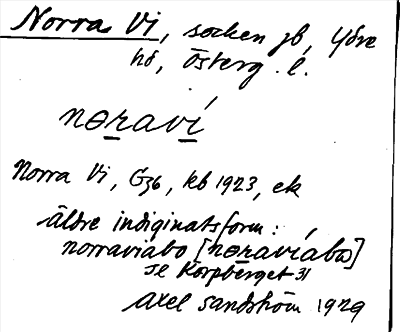 Norra Vi, socken jb, Ydre
hd, Österg. l.
nɵraví
Norra Vi, G36, kb 1923, ek
äldre indiginatsform:
norraviabo [nɵravíabω]
se Korpberget 31
Axel Sandström 1929